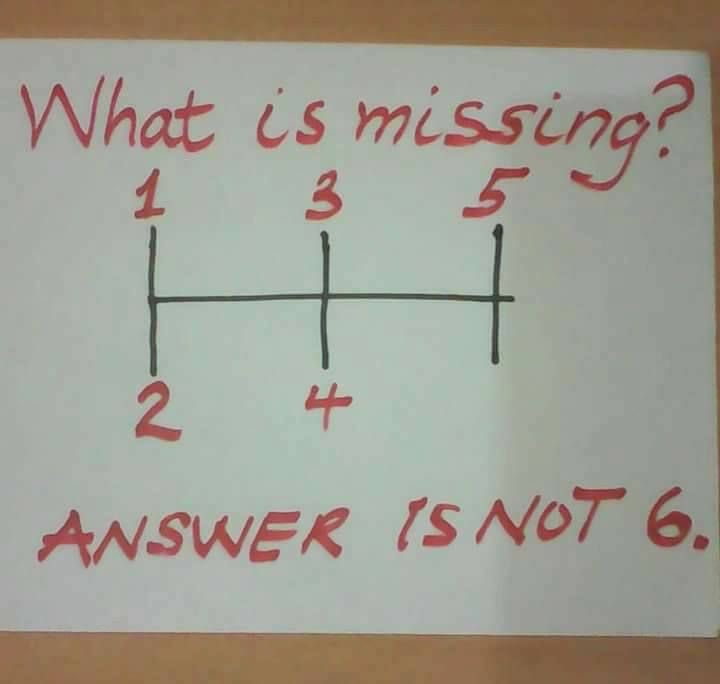 What is missing?
1 3 5
2 4
ANSWER IS NOT 6.